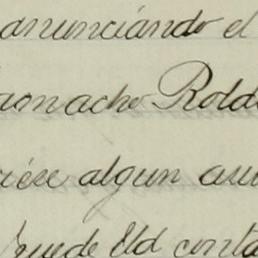 anunciando el
amacho Rold
iese algun
puede Ud conta